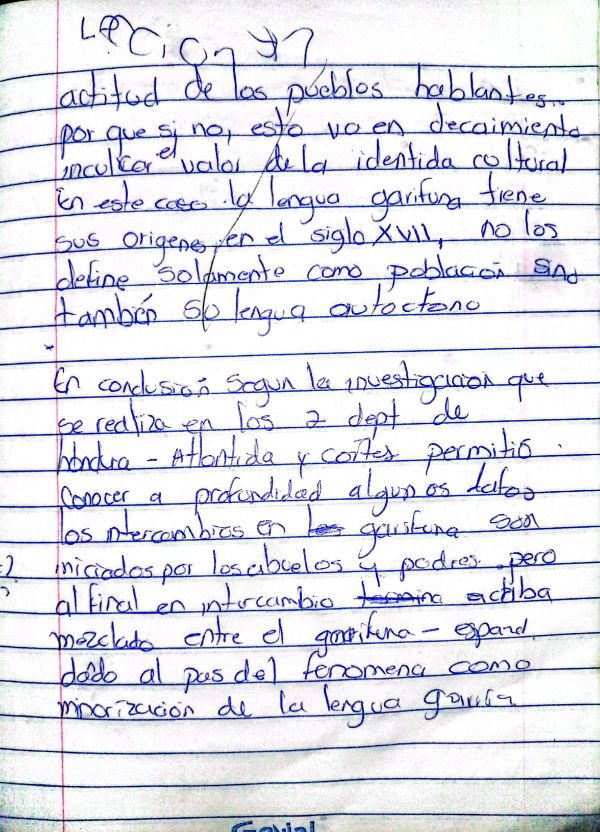 Lección #7
actitud de los pueblos hablantes.
por que si no, esto va en decaimiento
inculcar el valor de la identida cultural
En este caso la lengua garifuna tiene
sus origenes, en el siglo XVII, no los
define solamente como población sino
también su lengua autoctono
En conclusión segun la investigacion que
se realiza en los 2 dept de
hondura - Atlantida y cortés permitió
conocer a profundidad algunos datos
los intercambios en garifuna son
iniciados por los abuelos y padres, pero
al final en intercambio actiba
mezclado entre el garifuna -
dado al pas del fenomena como
minorización de la lengua